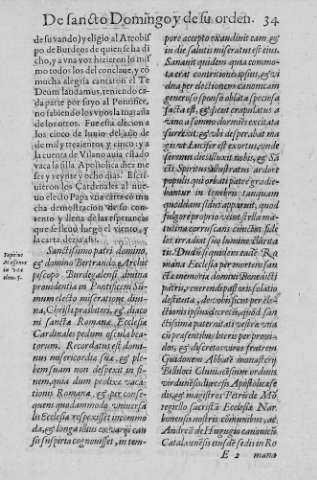 De sancto Domingo y de su orden. 34
de su vando) y eligio al Arçobis
po de Burdeos de quien se ha di
cho, y a vna voz hizieron lo mis
mo todos los del conclaue, y cõ
mucha alegria cantaron el Te
Deum laudamus, teniendo ca-
da parte por suyo al Pontifice,
no sabiendo los vnos la maraña
de los otros. Fue esta election a
los cinco de Iunio del año de
de mil y trezientos y cinco: y a
la cuenta de Vilano auia estado
vaca la silla Apostolica diez me
ses y veynte y ocho dias. Escri
uieron los Cardenales al nue-
uo electo Papa vna carta cõ mu
cha demostracion de su con-
tento y llena de las esperanças
que se les lleuò luego el viento, y
la carta dezia assi.
Sanctissimo patri domino,
& domino Bertrando, Archie
piscopo Burdegalensi, diuina
prouidentia in Pontificem Sũ
mum electo miseratione diui-
na, Christi presbiteri, & diaco
ni sanctæ Romanæ Ecclesiæ
Cardinales pedum oscula bea-
torum. Recordatus est domi-
nus misericordia sua, & ple
bem suam non despexit in fi-
nem, quia dum prolixæ vaca-
tionis Romanæ, & per conse-
quens quodammodo vniuersa
lis Ecclesiæ respexisset incommo
da, & longa illius
suspiria cognouisset, in tem-
pore accepto exaudiuit eam, &
in die salutis miseratus est eius.
Sanauit quidem quia commo-
ta erat contritiones ipsius, & vi
dua per electionem canonicam
generoso sponso oblata speciosa
facta est, & sicut crapulatus a
vino a somno dormiens excitata
surrexit, & vbi desperabat ma
gis vt Lucifer est exortus, vnde
serenus dies illuxit nobis, & Sã
cti Spiritus illustratus ardore
populus qui orbati patre gradie-
bantur in tenebris tanquam
quoddam sidus apparuit, quod
fulgore proprio velut stella ma-
tutina corruscans cunctis fide
lis irradiat suæ lumine clarita
tis. Dudum siquidem vacãte Ro
mana Ecclesia per mortem san
ctæ memoriæ domini Benedicti
patris, reuerendi pastoris solatio
destituta, de vobis sicut per ele
ctionis ipsius decretũ, quod san
ctissimæ paternitati vestræ vna
cũ præsentibus literis per proui-
dos, & discretos viros fratrem
Guidonem Abbatẽ monasterij
Belliloci Cluniacẽsium ordinis
virdunẽsis diœcesis Apostolicæ se
dis, & magistros Petrũ de Mõ
tegesio sacristã Ecclesiæ Nar
bonensis nostros communibus, et
Andreã de Hugugio canonicũ
Catalaunẽsis eiusdẽ sedis in Ro
E 2 mana